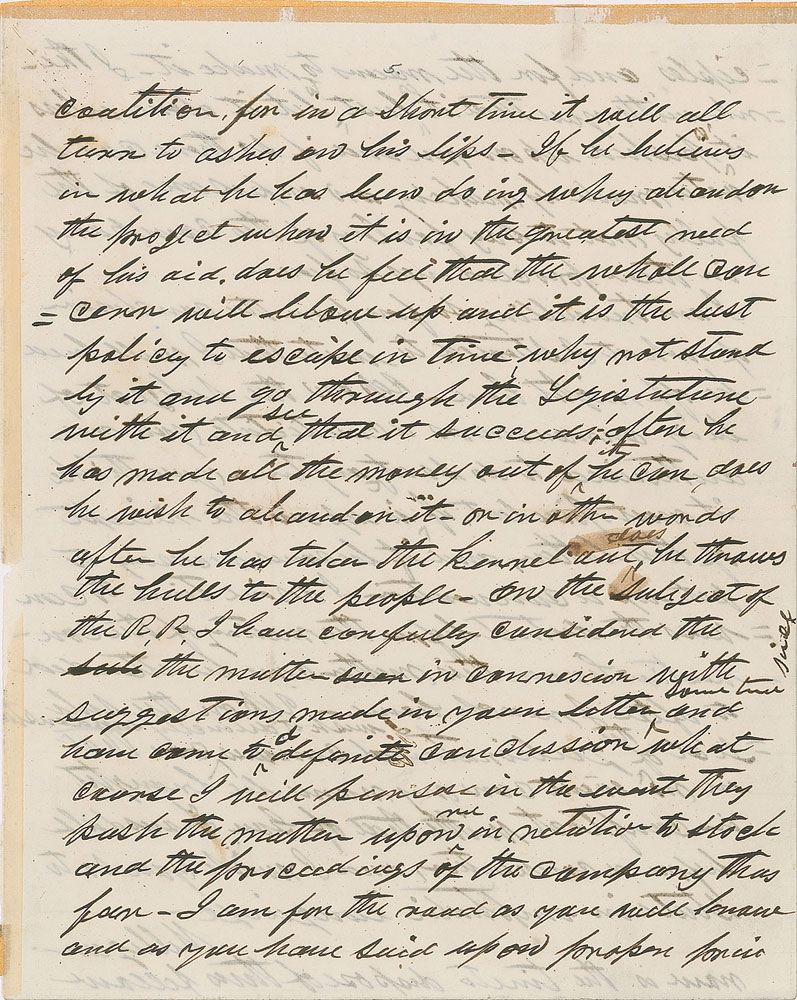 5.
coalition, for in a short time it will all
turn to ashes on his lips - If he believes
in what he has been doing why abandon
the project when it is in the greatest need
of his aid. does he feel that the whole con
= cern will blow up and it is the best
policy to escape in time - why not stand
by it and go through the Legislature
with it and see that it succeeds; after he
has made all the money out of it he can does
he wish to abandon it - or in other words
after he has taken the kernel out, does he throws
the hulls to the people - On the subject of
the R R. I have carefully considered the
sub the matter over in connexion with
suggestions made in your letter and some time since
have come to a definite conclussion what
course I will persue in the event they
push the matter upon me in relation to stock
and the proceedings of the company thus
far - I am for the road as you well know
and as you have said upon proper prin